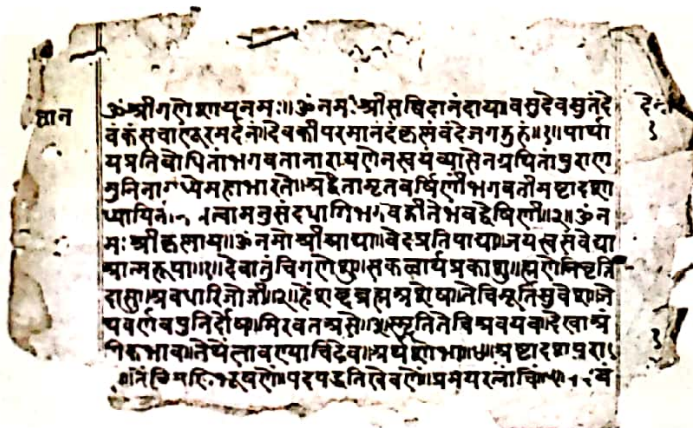 ॐश्रीगणेशायनमः॥ॐनमःश्रीसच्चिदानंदाय॥वसुदेवसुतंदे
वंकंसचाणूरमर्दनं॥देवकीपरमानंदंकृस्नवंदेजगद्गुरुं॥१॥पार्था
यप्रतिबोधितांभगवतानारायणेनस्वयंव्यासेनग्रथितांपुराण
मुनिनामध्येमहाभारते॥अद्वैतामृतवर्षिणींभगवतीमष्टादशा
ध्यायिनीं त्वामनुसंदधामिभगवद्गीतेभवद्वेषिणीं॥२॥ॐन
मःश्रीकृस्नाय॥ॐनमोजीआद्या॥वेदप्रतिपाद्या॥जयस्वसंवेद्या
आत्मरूपा॥१॥देवातुंचिगणेशु॥सकळार्थप्रकाशु॥ह्मणेनिवृत्ति
दासु॥अवधारिजोजी॥२॥हेंशब्दब्रह्मअशेष॥तेचिमूर्तिसुवेश॥ते
थवर्णवपुनिर्दोष॥मिरवतअसे॥३॥स्मृतितेचिअवयव॥देखाअं
गिकभाव॥तेथेंलावण्याचिठेव॥अर्थशोभा॥४॥अष्टादशपुरा
भूषणें॥पदपद्धतिखेवणें॥प्रमेयरत्नांचि